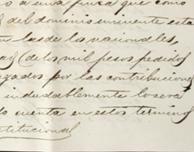 a una pura que como
del dominio eminente esta
los de los nacionales
(de los mil pesos pedidos
gados por las contribuciones
indudablemente lo sera
venta en estos termino
titucional